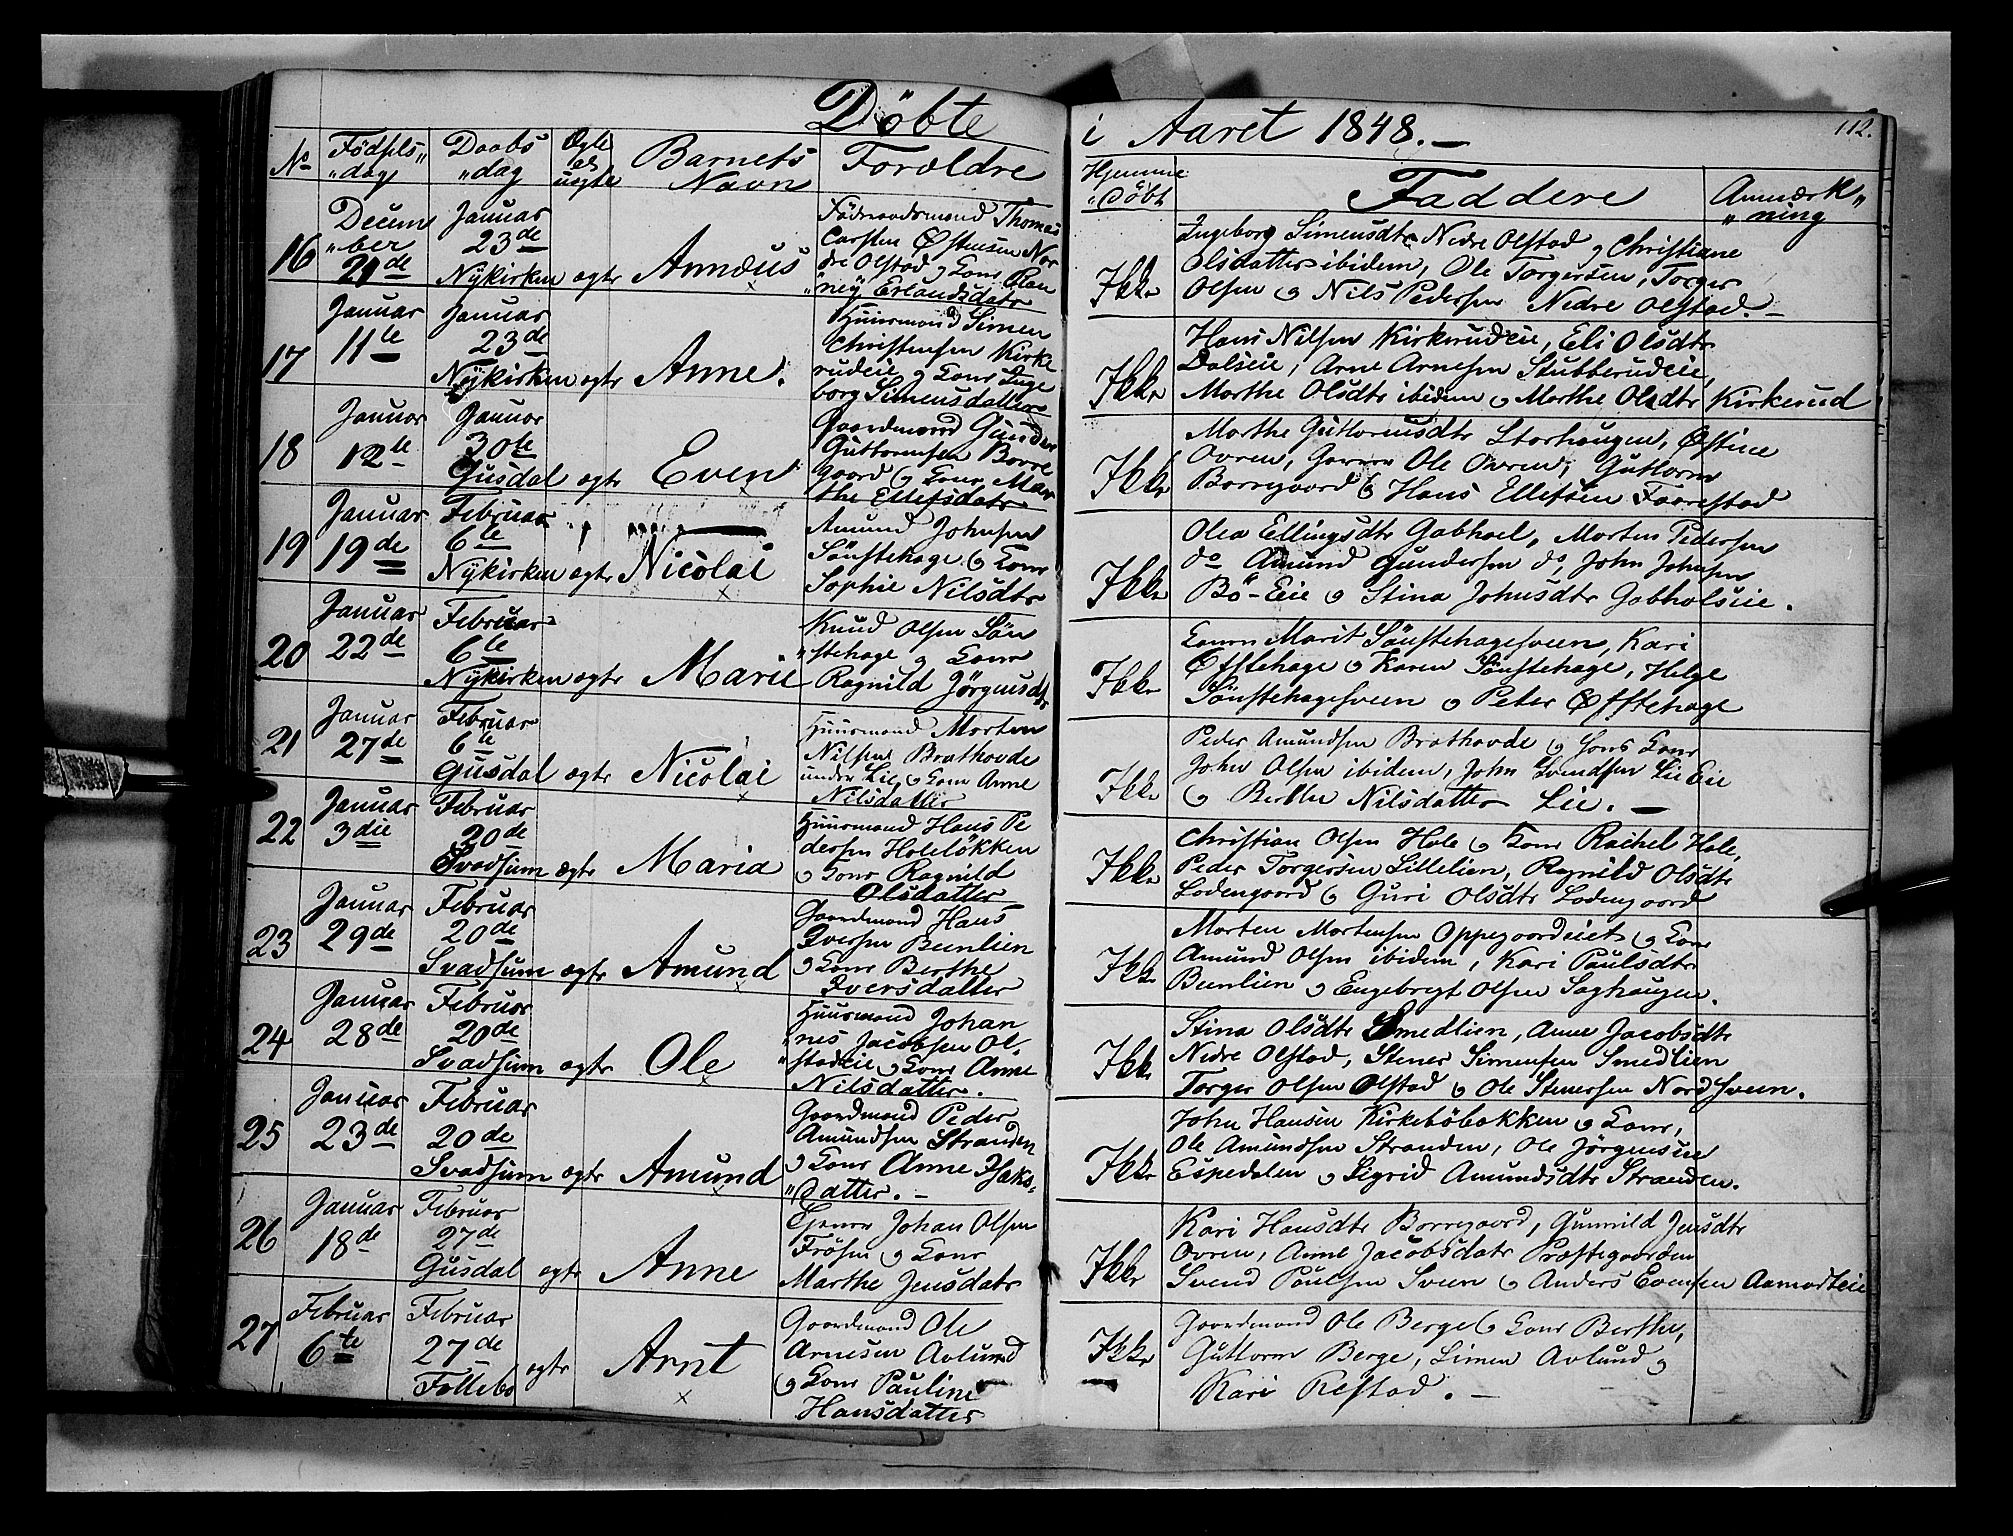 Döbte
i Aaret 1848.
112.
No
Födsels
dag
Daabs
dag
Ægte
el
uægte
Barnets
Navn
Forældre
Hjemme
döbt
Faddere
Anmærk
ning
16
Decem
ber
21de
Januar
23de
Nykirken
ægte
Annæus
Thomas
Carsten Østensen Nor
dre Olstad og Kone Ron
ney Erlandsdatr
Ikke
Ingeborg Simensdtr Nedre Olstad og Christiane
Olsdatter ibidem, Ole Torgersen, Torger
Olsen og Nils Pedersen Nedre Olstad.
17
Januar
11te
Januar
23de
Nykirken
ægte
Anne.
Huusmand Simen
Christensen Kirke
rudeie og Kone Inge
borg Simensdatter
Ikke
Hans Nilsen Kirkerudeie, Eli Olsdtr
Dalseie, Arne Arnesen Stubberudeie,
Marthe Olsdtr ibidem og Marthe Olsdtr Kirkerud
18
Januar
12te
Januar
30te
Gusdal
ægte
Even
Gaardmand Gunder
Guttormsen Borre
gaard og Kone Mar
the Ellefsdatr
Ikke
Marthe Guttormsdtr Storhaugen, Østine
Ovren, Ole Ovren, Guttorm
Borregaard og Hans Ellefsen Faarestad
19
Januar
19de
Februar
6te
Nykirken
ægte
Nicolai
Amund Johnsen
Sönstehage og Kone
Sophie Nilsdtr
Ikke
Olea Ellingsdtr Gabhoel, Morten Pedersen
do Amund Gundersen do, John Johnsen
Bö-Eie og Stina Johnsdtr Gabholseie.
20
Januar
22de
Februar
6te
Nykirken
ægte
Marie
Knud Olsen Sön
stehage og Kone
Ragnild Jörgensdtr
Ikke
Konen Marit Sönstehagesveen, Kari
Øfstehage og Karen Sönstehage, Helge
Sönstehagesveen og Peter Øfstehage
21
Januar
27de
Februar
6te
Gusdal
ægte
Nicolai
Huusmand Morten
Nilsen Brathovde
under Lie og Kone Anne
Nilsdatter
Ikke
Peder Amundsen Brathovde og Hans Kone
John Olsen ibidem, John Svendsen Lie Eie
og Berthe Nilsdatter Lie.
22
Januar
3die
Februar
20de
Svadsum
ægte
Maria
Huusmand Hans Pe
dersen Holelökken
og Kone Ragnild
Olsdatter
Ikke
Christian Olsen Hole og Kone Rachel Hole,
Peder Torgersen Lillelien, Ragnild Olsdtr
Lodengaard og Guri Olsdtr Lodengaard
23
Januar
29de
Februar
20de
Svadsum
ægte
Amund
Gaardmand Hans
Iversen Bunlien
og Kone Berthe
Iversdatter
Ikke
Morten Mortensen Oppegaardeiet og Kone
Amund Olsen ibidem, Kari Paulsdtr
Bunlien og Engebregt Olsen Saghaugen.
24
Januar
28de
Februar
20de
Svadsum
ægte
Ole
Huusmand Johan
nes Jacobsen Ol
stadeie og Kone Anne
Nilsdatter.
Ikke
Stina Olsdtr Smedlien, Anne Jacobsdtr
Nedre Olstad, Stener Simensen Smedlien
Torger Olsen Olstad og Ole Stenersen Nordsveen.
25
Januar
23de
Februar
20de
Svadsum
ægte
Amund
Gaardmand Peder
Amundsen Stranden
og Kone Anne Isaks
datter.
Ikke
John Hansen Kirkeböbakken og Kone,
Ole Amundsen Stranden, Ole Jörgensen
Espedalen og Sigrid Amundsdtr Stranden.
26
Januar
18de
Februar
27de
Gusdal
ægte
Anne
Johan Olsen
Frösen og Kone
Marthe Jensdatr
Ikke
Kari Hansdtr Borregaard, Gunnild Jensdtr
Ovren, Anne Jacobsdatr Præstegaarden
Svend Paulsen Sveen og Anders Evensen Aamodteie
27
Februar
6te
Februar
27de
Follebo
ægte
Arnt
Gaardmand Ole
Arnesen Avlund
og Kone Pauline
Hansdatter
Ikke
Gaardmand Ole Berge og Kone Berthe,
Guttorm Berge, Simen Avlund og
Kari Restad.